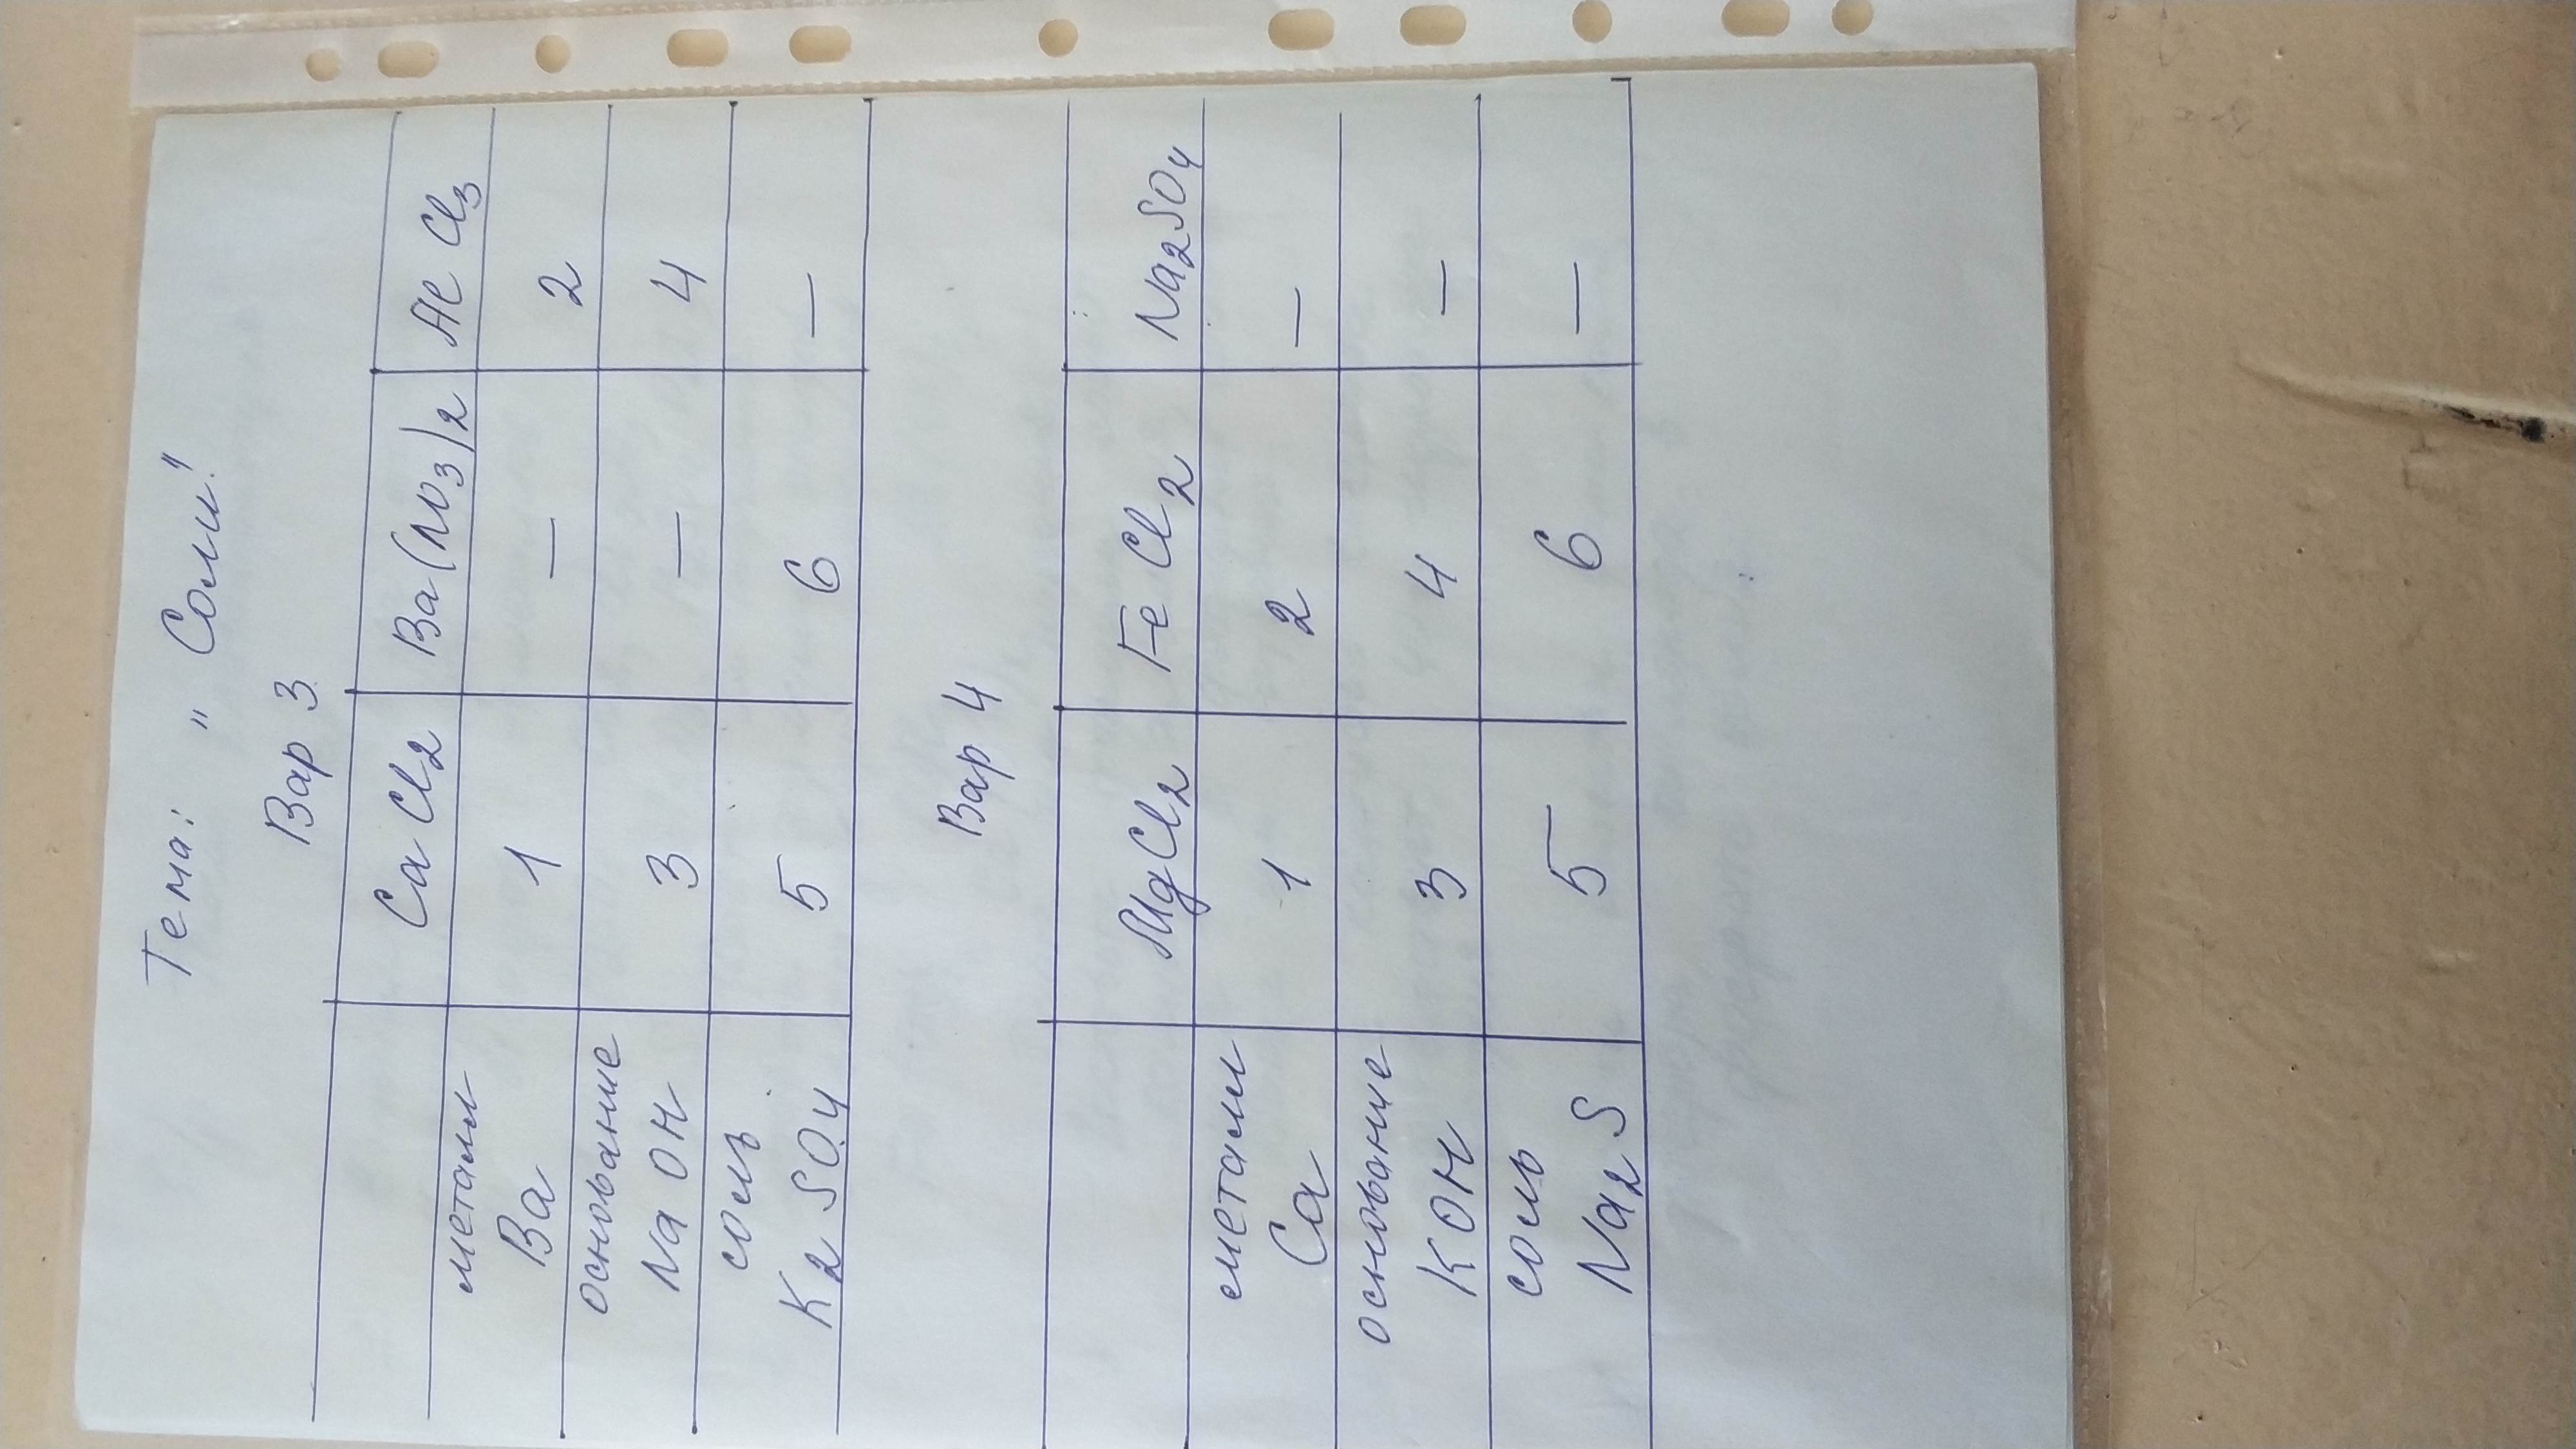 Тема: " Соли"
Вар 3
CaCl2 Ba(NO3)2 AlCl3
металл Ba 1 — 2
основание NaOH 3 — 4
соль K2SO4 5 6 —
Вар 4
MgCl2 FeCl2 Na2SO4
металл Ca 1 2 —
основание KOH 3 4 —
соль Na2S 5 6 —